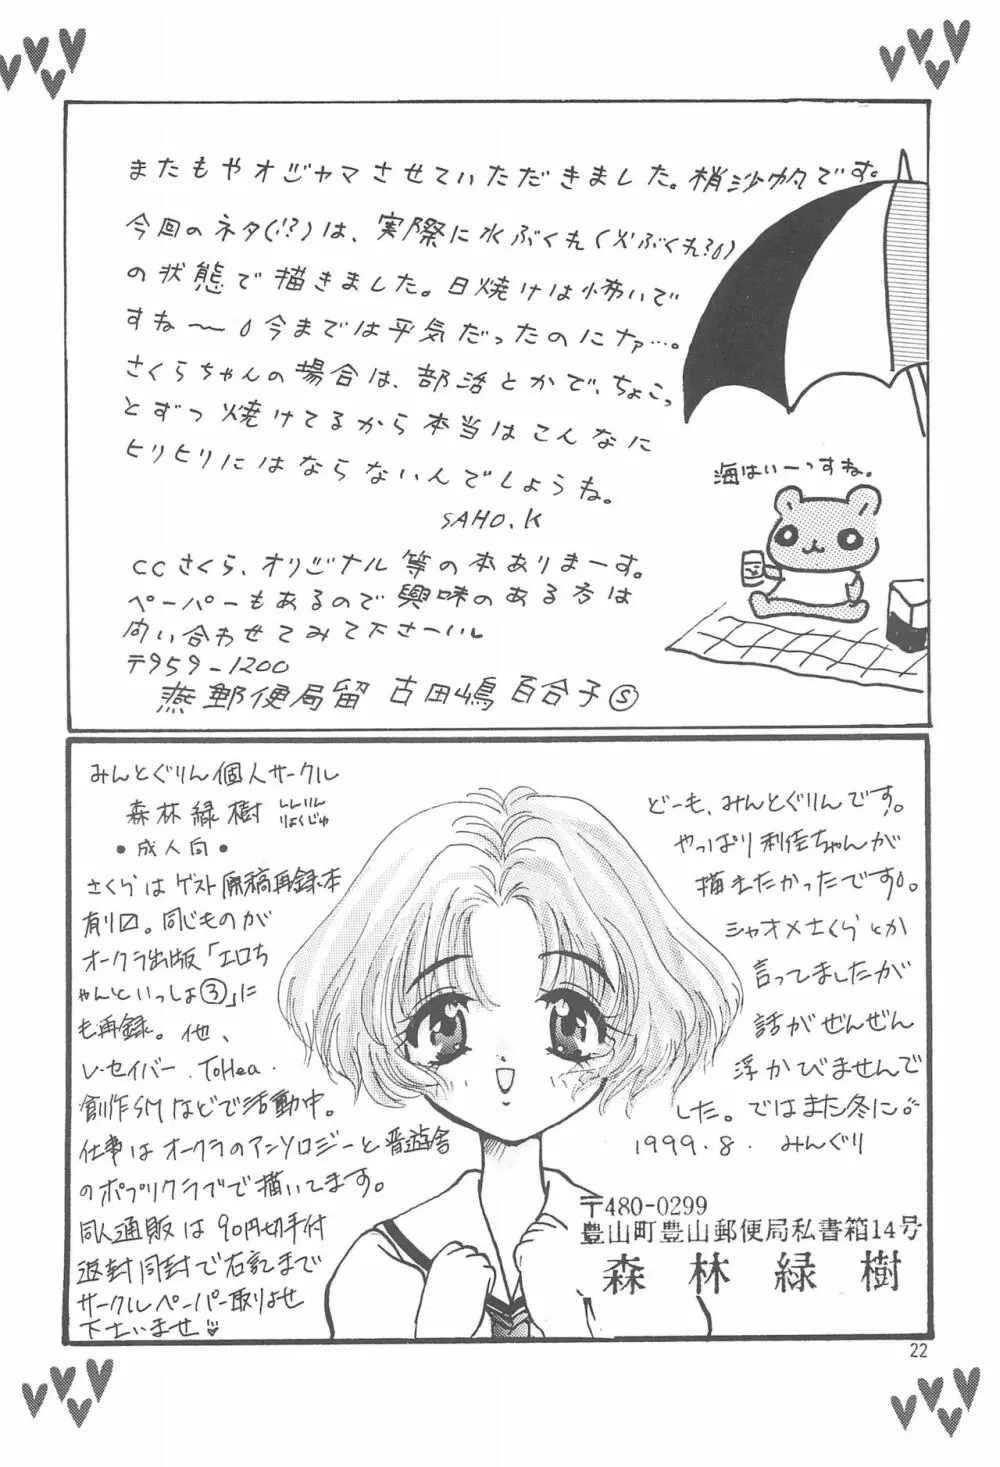 またもやオジャマさせていただきました。梢沙帆です。
今回のネタ(!?)は、実際に水ぶくれ(火ぶくれ?)
の状態で描きました。日焼けは怖いで
すね〜 今までは平気だったのにナァ…。
さくらちゃんの場合は、部活とかで、ちょこっ
とずつ焼けてるから本当はこんなに
ヒリヒリにはならないんでしょうね。
SAHO.K
海はいーっすね。
CCさくら、オリジナル等の本ありまーす。
ペーパーもあるので興味のある方は
問い合わせてみて下さーい
〒959-1200
燕郵便局留 古田嶋百合子Ⓢ
みんとぐりん個人サークル
森林緑樹 しんりんりょくじゅ
•成人向•
さくらはゲスト原稿再録本
有り〼。同じものが
オークラ出版「エロち
ゃんといっしょ③」に
も再録。他、
レ・セイバー.ToHea.
創作SMなどで活動中。
仕事はオークラのアンソロジーと晋遊舎
のポプリクラブで描いてます。
同人通販は90円切手付
返封同封で右記まで
サークルペーパー取りよせ
下さいませ♡
どーも、みんとぐりんです。
やっぱり利佳ちゃんが
描きたかったです。
シャオメさくらとか
言ってましたが
話がぜんぜん
浮かびませんで
した。ではまた冬に
1999.8. みんぐり
〒480-0299
豊山町豊山郵便局私書箱14号
森林緑樹
22